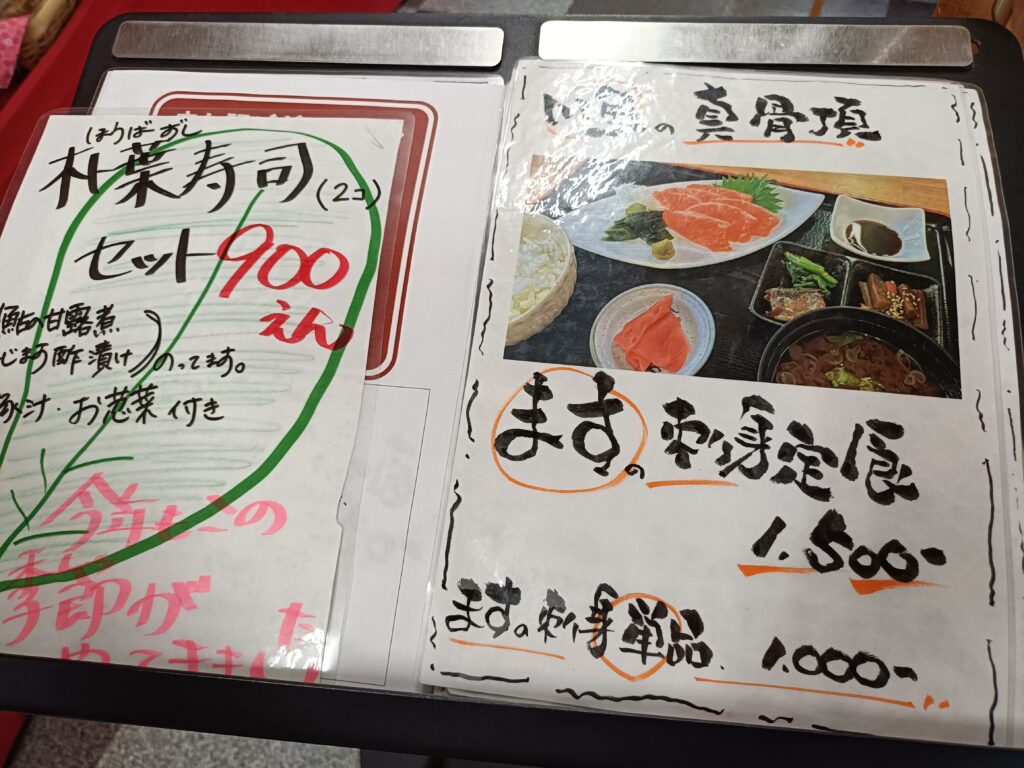 ほうばずし
朴葉寿司(2コ)
セット900
えん
鮎の甘露煮
じまう酢漬け
のってます。
豚汁・お惣菜付き
今年もこの
季節が
やってきました
川魚の真骨頂
ますの刺身定食
1,500-
ますの刺身単品
1,000-